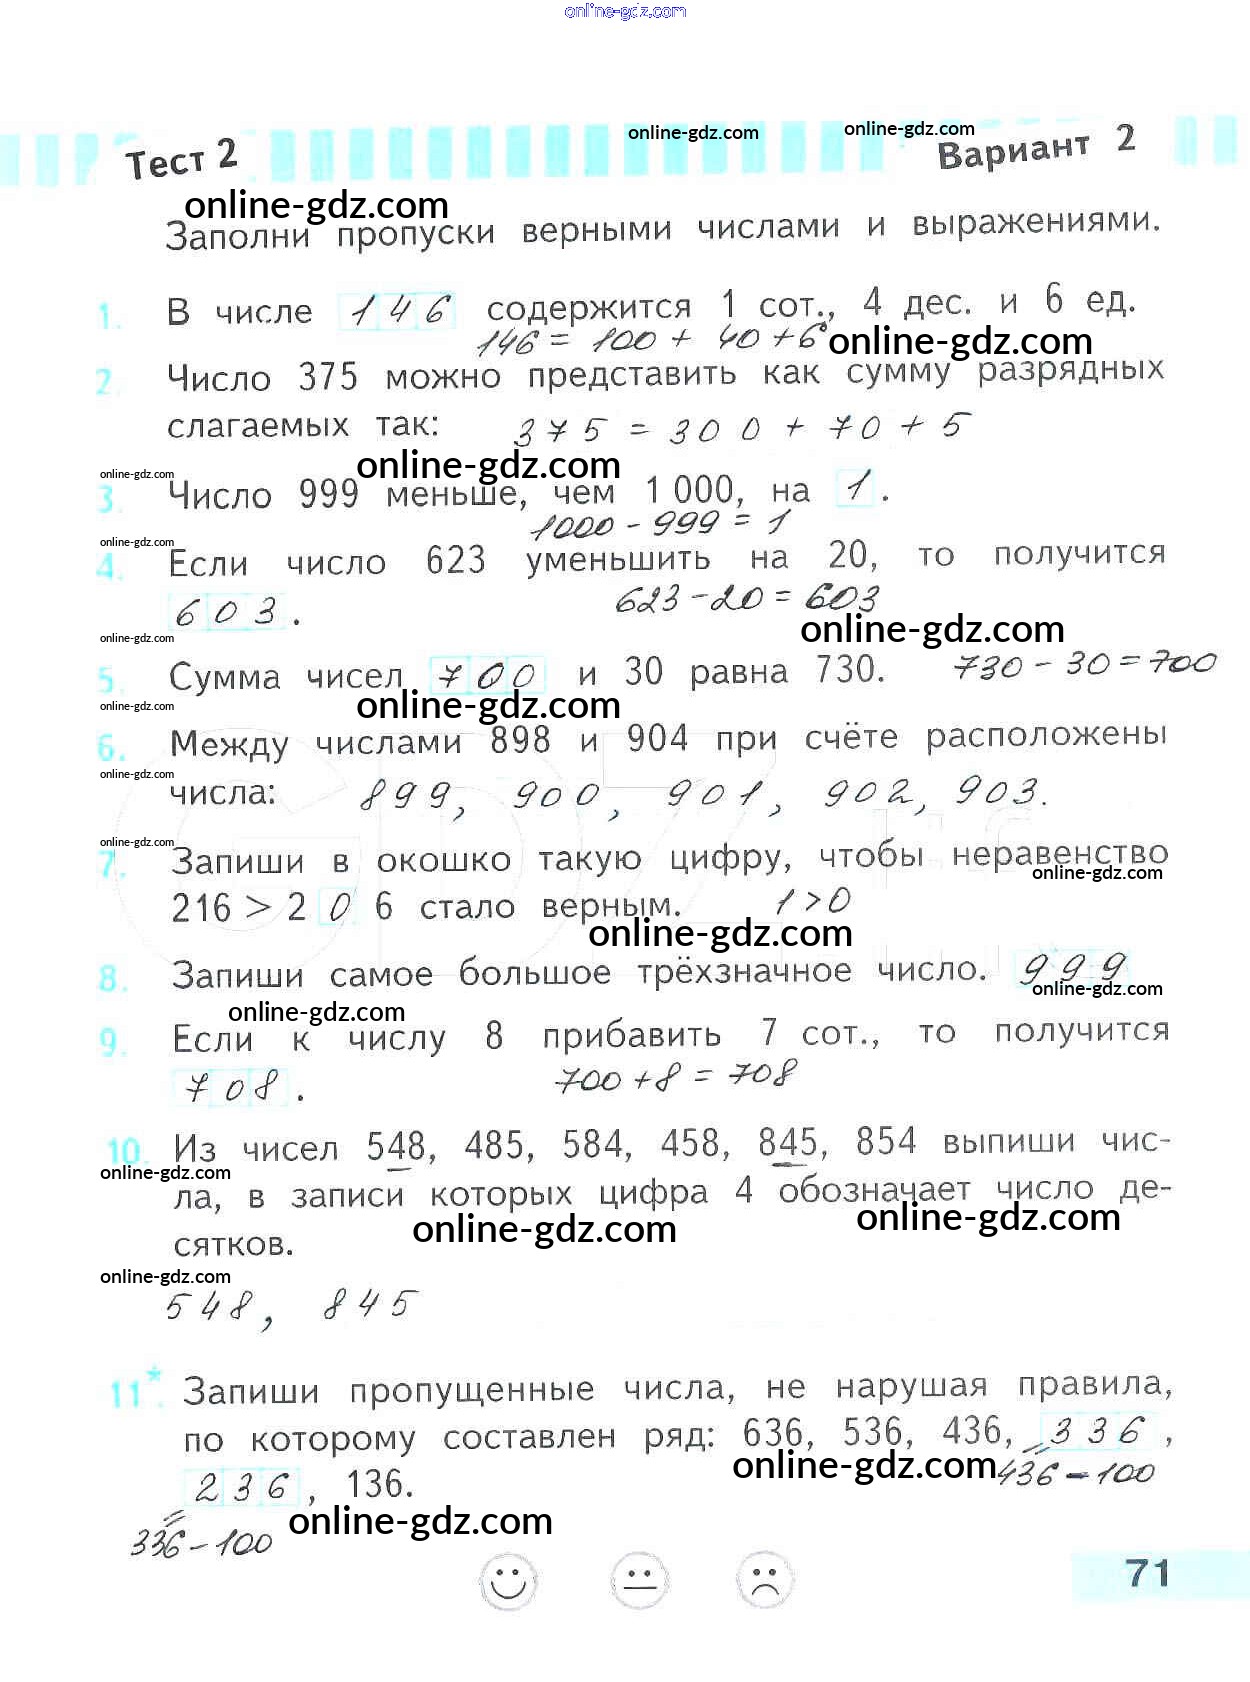 online-gdz.com
online-gdz.com online-gdz.com
Тест 2 Вариант 2
online-gdz.com
Заполни пропуски верными числами и выражениями.
1. В числе 146 содержится 1 сот., 4 дес. и 6 ед.
146 = 100 + 40 + 6
online-gdz.com
2. Число 375 можно представить как сумму разрядных
слагаемых так: 375 = 300 + 70 + 5
online-gdz.com
online-gdz.com
3. Число 999 меньше, чем 1 000, на 1.
1000 - 999 = 1
online-gdz.com
4. Если число 623 уменьшить на 20, то получится
603. 623 - 20 = 603
online-gdz.com
online-gdz.com
5. Сумма чисел 700 и 30 равна 730. 730 - 30 = 700
online-gdz.com
online-gdz.com
6. Между числами 898 и 904 при счёте расположены
online-gdz.com
числа: 899, 900, 901, 902, 903.
online-gdz.com
7. Запиши в окошко такую цифру, чтобы неравенство
online-gdz.com
216 > 2 0 6 стало верным. 1 > 0
online-gdz.com
8. Запиши самое большое трёхзначное число. 999
online-gdz.com
online-gdz.com
9. Если к числу 8 прибавить 7 сот., то получится
708. 700 + 8 = 708
10. Из чисел 548, 485, 584, 458, 845, 854 выпиши чис-
online-gdz.com
ла, в записи которых цифра 4 обозначает число де-
online-gdz.com online-gdz.com
сятков.
online-gdz.com
548, 845
11*. Запиши пропущенные числа, не нарушая правила,
по которому составлен ряд: 636, 536, 436, 336,
online-gdz.com 436 - 100
236, 136.
online-gdz.com
336 - 100
71